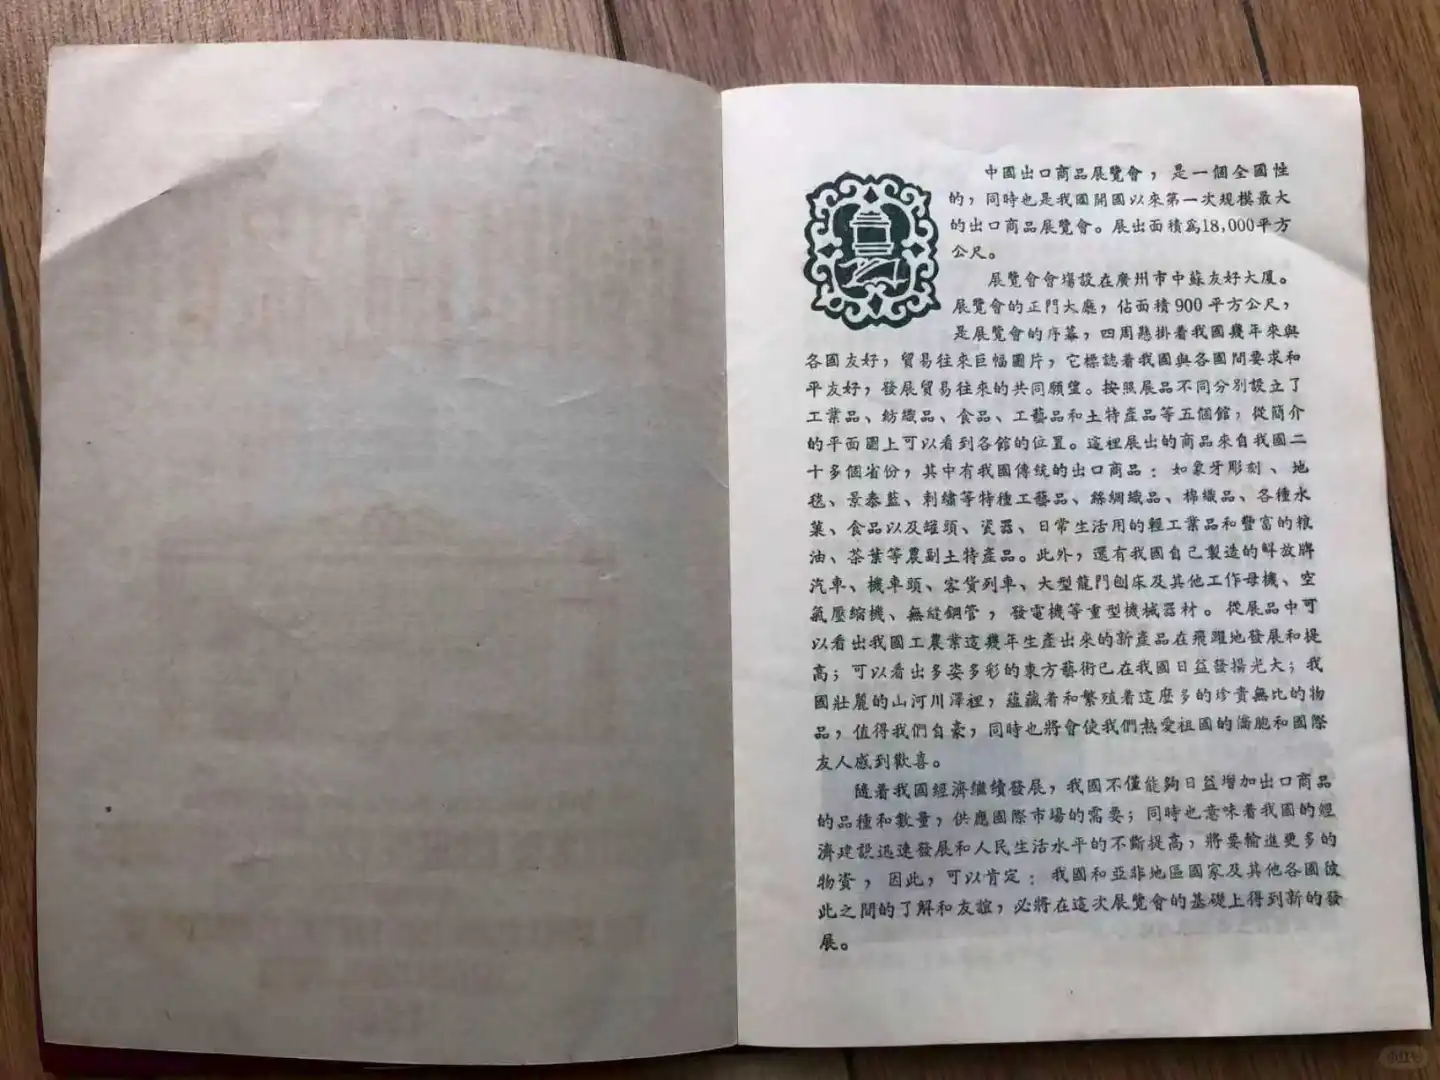 中國出口商品展覽會，是一個全國性
的，同時也是我國開國以來第一次規模最大
的出口商品展覽會。展出面積爲18,000平方
公尺。
展覽會會場設在廣州市中蘇友好大厦。
展覽會的正門大廳，佔面積900平方公尺，
是展覽會的序幕，四周懸掛着我國幾年來與
各國友好，貿易往來巨幅圖片，它標誌着我國與各國間要求和
平友好，發展貿易往來的共同願望。按照展品不同分別設立了
工業品、紡織品、食品、工藝品和土特產品等五個館，從簡介
的平面圖上可以看到各館的位置。這裡展出的商品來自我國二
十多個省份，其中有我國傳統的出口商品：如象牙彫刻、地
毯、景泰藍、刺繡等特種工藝品、絲綢織品、棉織品、各種水
菓、食品以及罐頭、瓷器、日常生活用的輕工業品和豐富的粮
油、茶葉等農副土特產品。此外，還有我國自己製造的解放牌
汽車、機車頭、客貨列車、大型龍門刨床及其他工作母機、空
氣壓縮機、無縫鋼管，發電機等重型機械器材。從展品中可
以看出我國工農業這幾年生產出來的新產品在飛躍地發展和提
高；可以看出多姿多彩的東方藝術已在我國日益發揚光大；我
國壯麗的山河川澤裡，蘊藏着和繁殖着這麼多的珍貴無比的物
品，值得我們自豪，同時也將會使我們熱愛祖國的僑胞和國際
友人感到歡喜。
隨着我國經濟繼續發展，我國不僅能夠日益增加出口商品
的品種和數量，供應國際市場的需要；同時也意味着我國的經
濟建設迅速發展和人民生活水平的不斷提高，將要輸進更多的
物資，因此，可以肯定：我國和亞非地區國家及其他各國彼
此之間的了解和友誼，必將在這次展覽會的基礎上得到新的發
展。
小红书